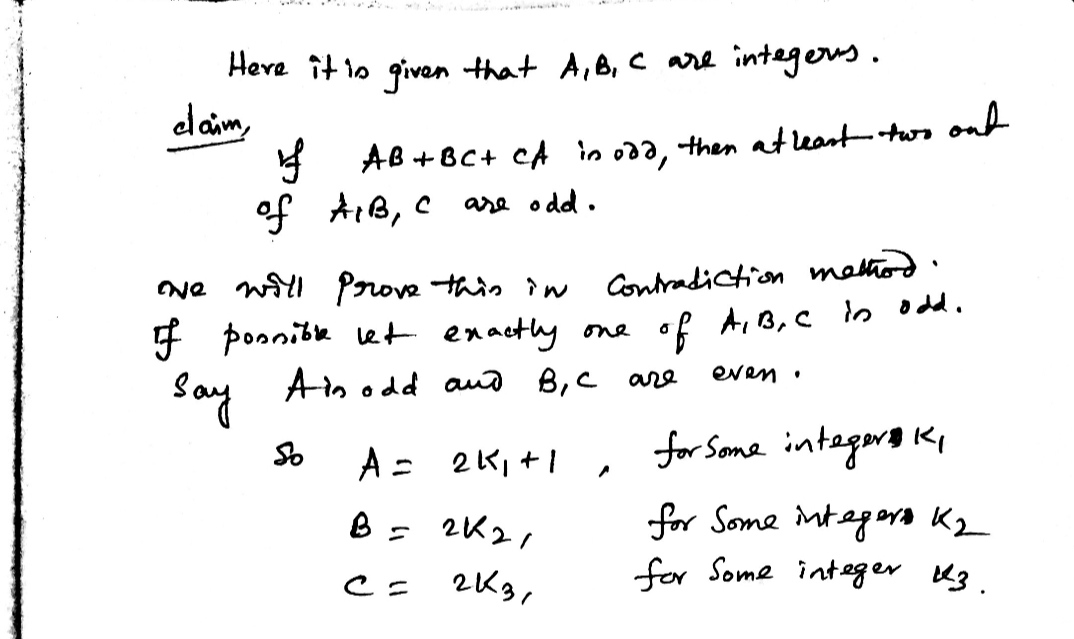 Here it is given that A, B, C are integers.
claim,
If AB + BC + CA is odd, then at least two out
of A, B, C are odd.
we will prove this in Contradiction method.
If possible let exactly one of A, B, C is odd.
Say A is odd and B, C are even.
So A = 2K₁ + 1, for some integers K₁
B = 2K₂, for some integers K₂
C = 2K₃, for some integer K₃.